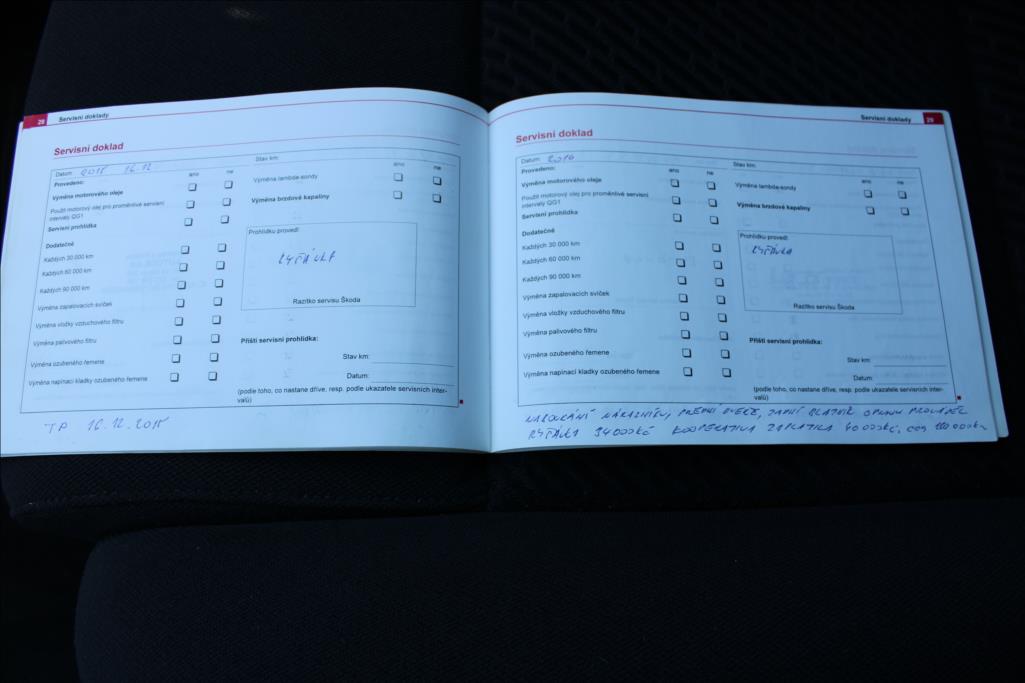 28 Servisní doklady
Servisní doklad
Datum: 2015 16.12
Stav km:
Provedeno: ano ne
ano ne
Výměna motorového oleje
Použit motorový olej pro proměnlivé servisní
intervaly QG1
Servisní prohlídka
Výměna lambda-sondy
Výměna brzdové kapaliny
Dodatečně
Každých 30 000 km
Každých 60 000 km
Každých 90 000 km
Výměna zapalovacích svíček
Výměna vložky vzduchového filtru
Výměna palivového filtru
Výměna ozubeného řemene
Výměna napínací kladky ozubeného řemene
Prohlídku provedl:
RYŤÁVKA
Razítko servisu Škoda
Příští servisní prohlídka:
Stav km:
Datum:
(podle toho, co nastane dříve, resp. podle ukazatele servisních inter-
valů)
TP 16.12.2015
Servisní doklady 29
Servisní doklad
Datum: 2016
Stav km:
Provedeno: ano ne
ano ne
Výměna motorového oleje
Použit motorový olej pro proměnlivé servisní
intervaly QG1
Servisní prohlídka
Výměna lambda-sondy
Výměna brzdové kapaliny
Dodatečně
Každých 30 000 km
Každých 60 000 km
Každých 90 000 km
Výměna zapalovacích svíček
Výměna vložky vzduchového filtru
Výměna palivového filtru
Výměna ozubeného řemene
Výměna napínací kladky ozubeného řemene
Prohlídku provedl:
RYŤÁVKA
Razítko servisu Škoda
Příští servisní prohlídka:
Stav km:
Datum:
(podle toho, co nastane dříve, resp. podle ukazatele servisních inter-
valů)
NÁRAZNÍKU, PŘEDNÍ DVEŘE, ZADNÍ BLATNÍK OPRAVU
RYŤÁVKA 34000KČ KOOPERATIVA ZAPLATILA 40 000KČ,